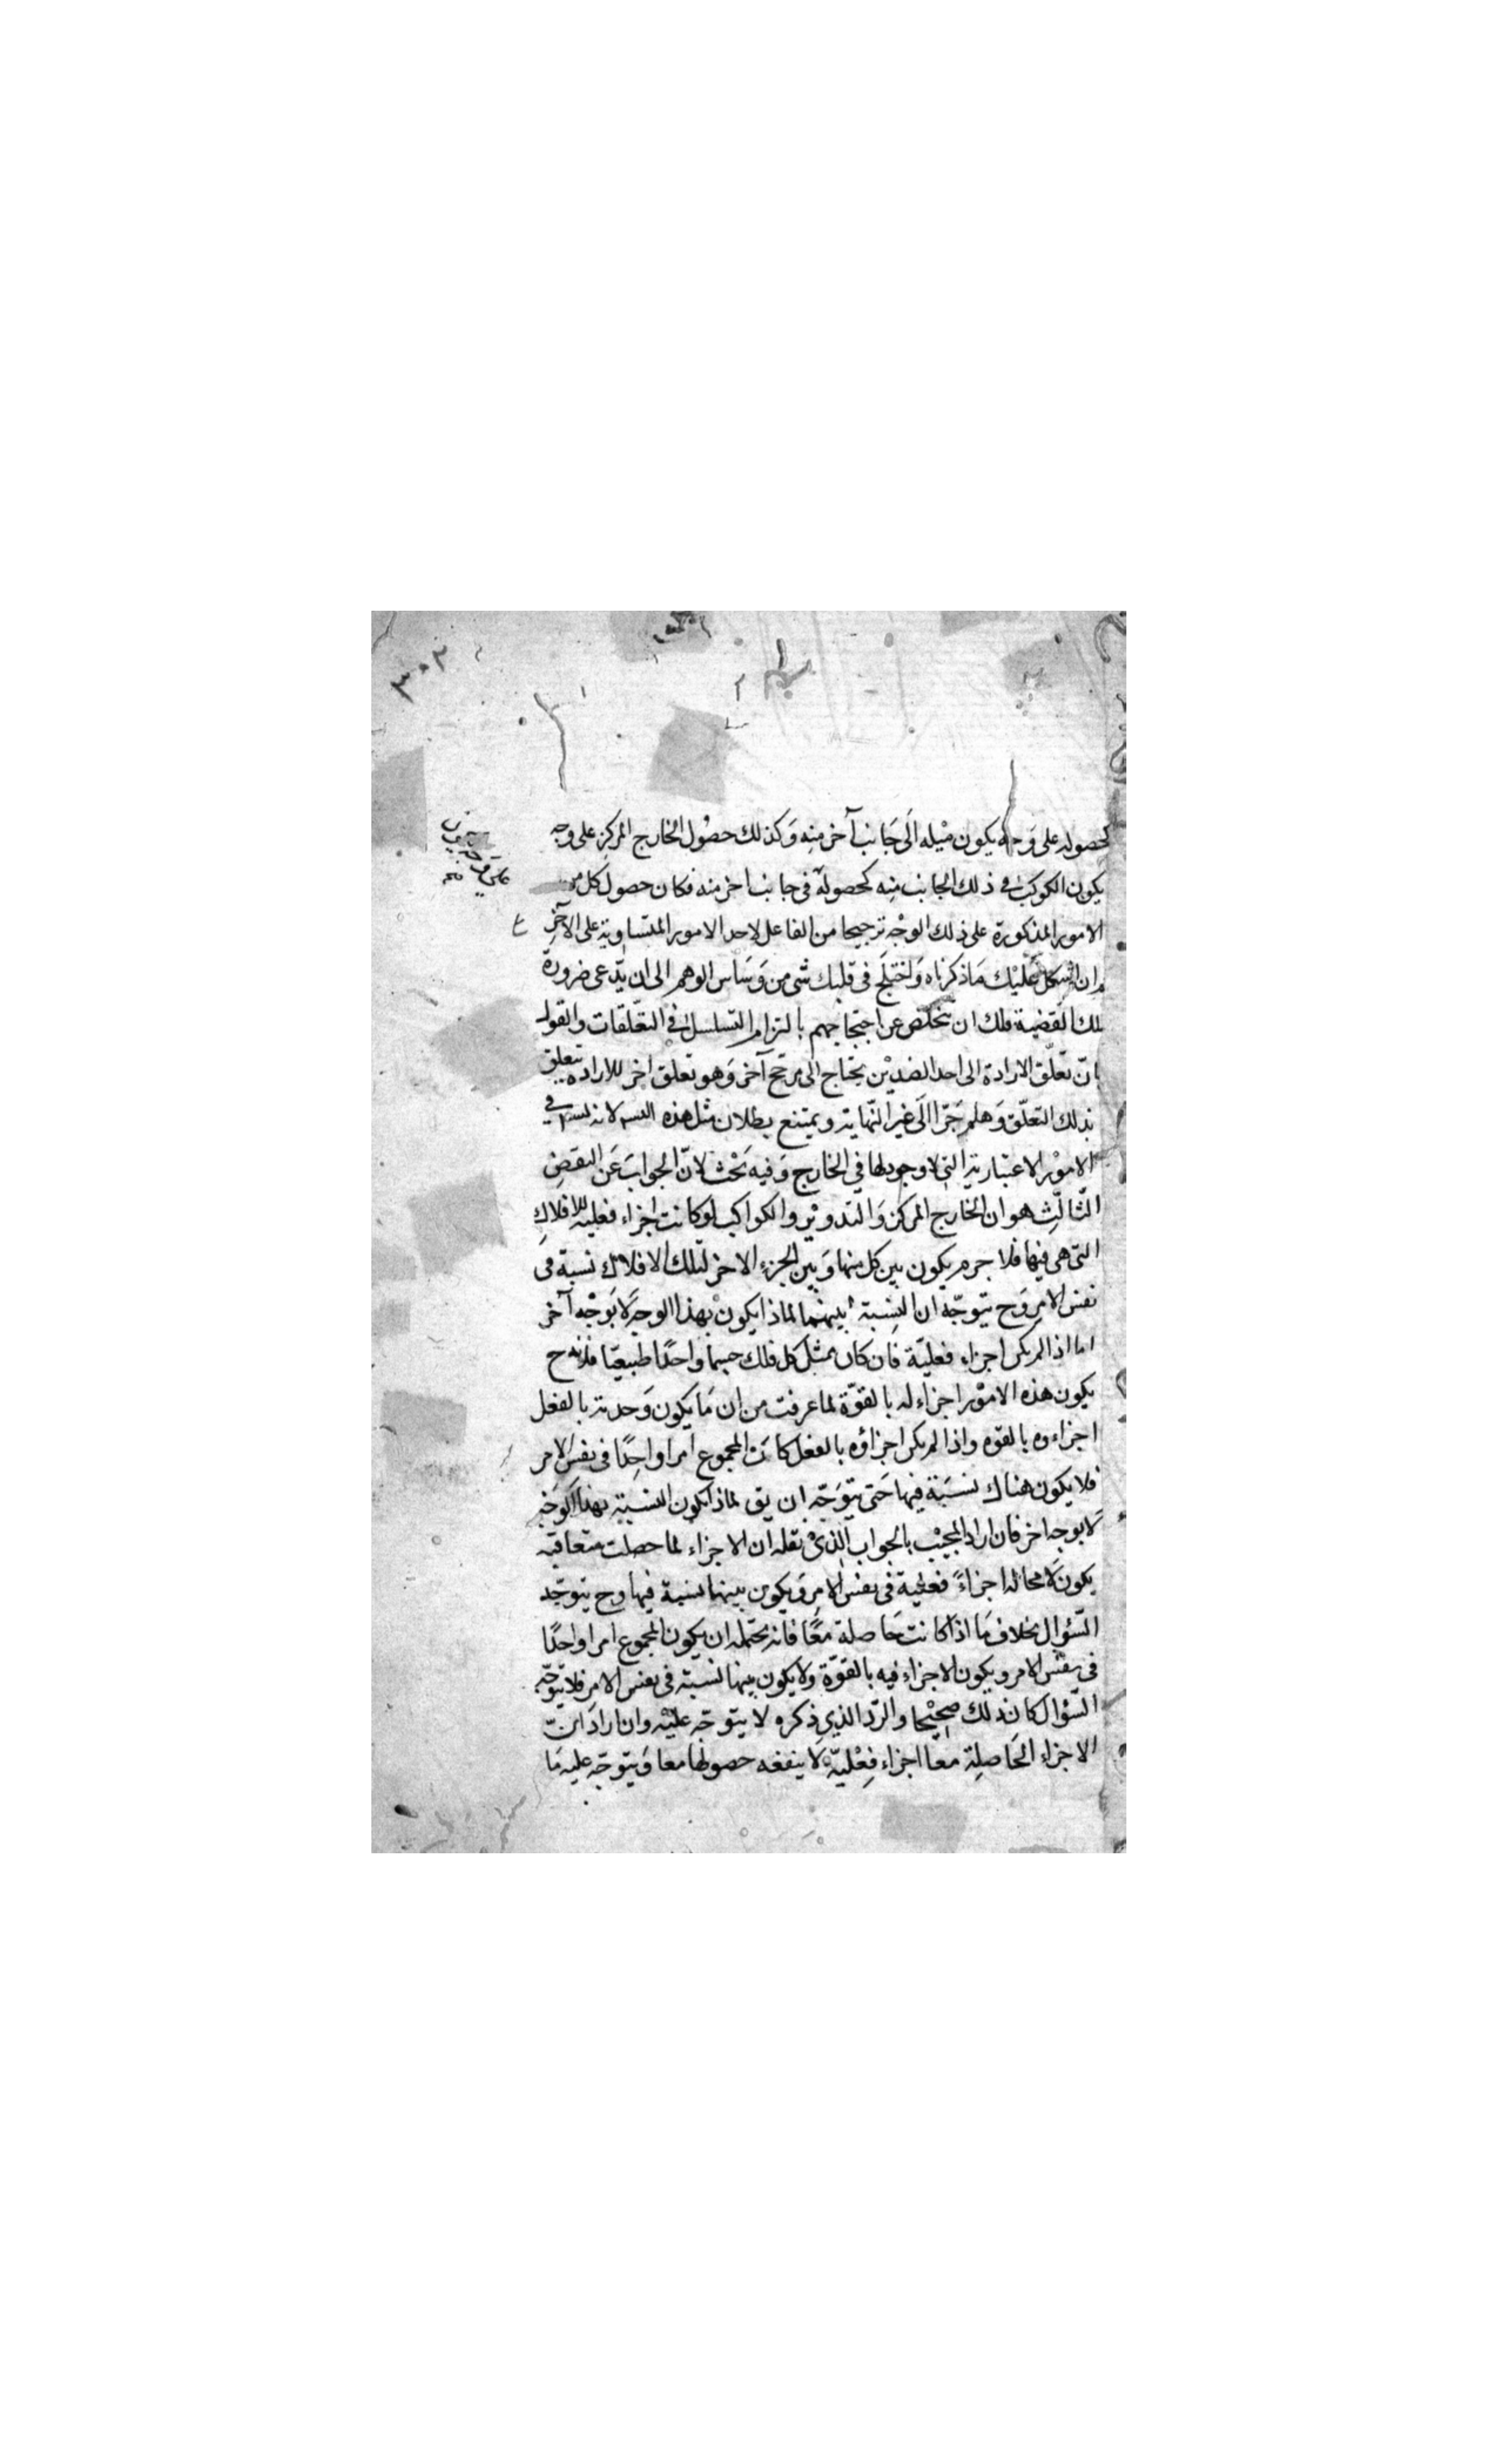 ٣٠٢
كحصوله على وجه يكون ميله الَى جَانب آخر منِه وَكذلك حصُول الخارج المركز على وجه
يكون الكوكب فى ذلك الجانب منِه كحصوله فى جانب اخر منه فكان حصول كل من
الامور المذكورة على ذلك الوجْه ترجيحا من الفاعل لاحد الامور المتساوية على الآخرِ
وان اشكل عَليْك مَا ذكرناه وَاختلَج فى قلبك شى من وَسَاس الوهم الى ان يدّعى ضرورة
تلك القضية فلك ان تتخلّص عن احتجاجهم بالتزام التسلسل فى التعّلقات والقول
بانّ تعلّق الارادة الى احد الضديْن يحتاج الى مرجّح آخر وَهو تعلق اخر للاراده يتعلق
بذلك التعلّق وَهلم جَرّا الَى غير النّهاية ويمتنع بطلان مثل هذه التسـ لانه تسـ فى
الامُوْر الاعتبارية التى لا وجود لها فى الخارج وَفيه بَحْث لانّ الجوابَ عَن النقضِ
الثّالثِ هو ان الخارج المركز وَالتدوير والكواكب لو كانت اجزاء فعليه للافلاكِ
التّى هى فيها فلا جرم يكون بين كل منها وَبين الجزءِ الاخر لتلك الافلاك نسبة فى
نفس الامرِ وَح يتوجّه ان النِسْبة بينهما لماذا يكونُ بهذا الوجه لَا بوَجْه آخر
اما اذا لم يكن اجزاء فعليّة فَان كان مثل كل فلك جسما واحدًا طبيعيّا فلانه ح
يكون هذه الامُوْر اجزاء له بالقوّة لما عرفت من ان مَا يكون وَحدته بالفعل
اجزاءوه بالقوّه واذا لم يكن اجزاؤه بالفعل كانَت المجموع امرا واحِدًا فى نفسَ الامر
فلا يكون هناك نسْبَة فيها حَتى يتوَجّه ان يق لماذا يكون النسبة بهذا الوَجْه
لَا بوجه اخر فان اراد المجيْب بالجواب الّذىْ نقله ان الاجزاء لما حصلت متعاقبه
يكون لَا محاله اجزاءً فعليّة فى نفس الامِر وَيكون بينها نسبة فيها وح يتوجّه
السّؤال بخلاف مَا اذا كانت حَاصلة معًا فانه يحتمل ان يكون المجموع امرا واحدًا
فى نفْس الامر ويكون الاجزاء فيه بالقوّة ولا يكون بينها نسبة فى نفس الامر فلا يتوجّه
السّؤال كان ذلك صحِيْحا والرّد الذي ذكره لا يتوجّه عليْه وان ارادَ انّ
الاجزاء الحَاصِلة معًا اجزاء فِعْليّه لَا ينفعه حصولها معا وَيتوجّه عليه مَا